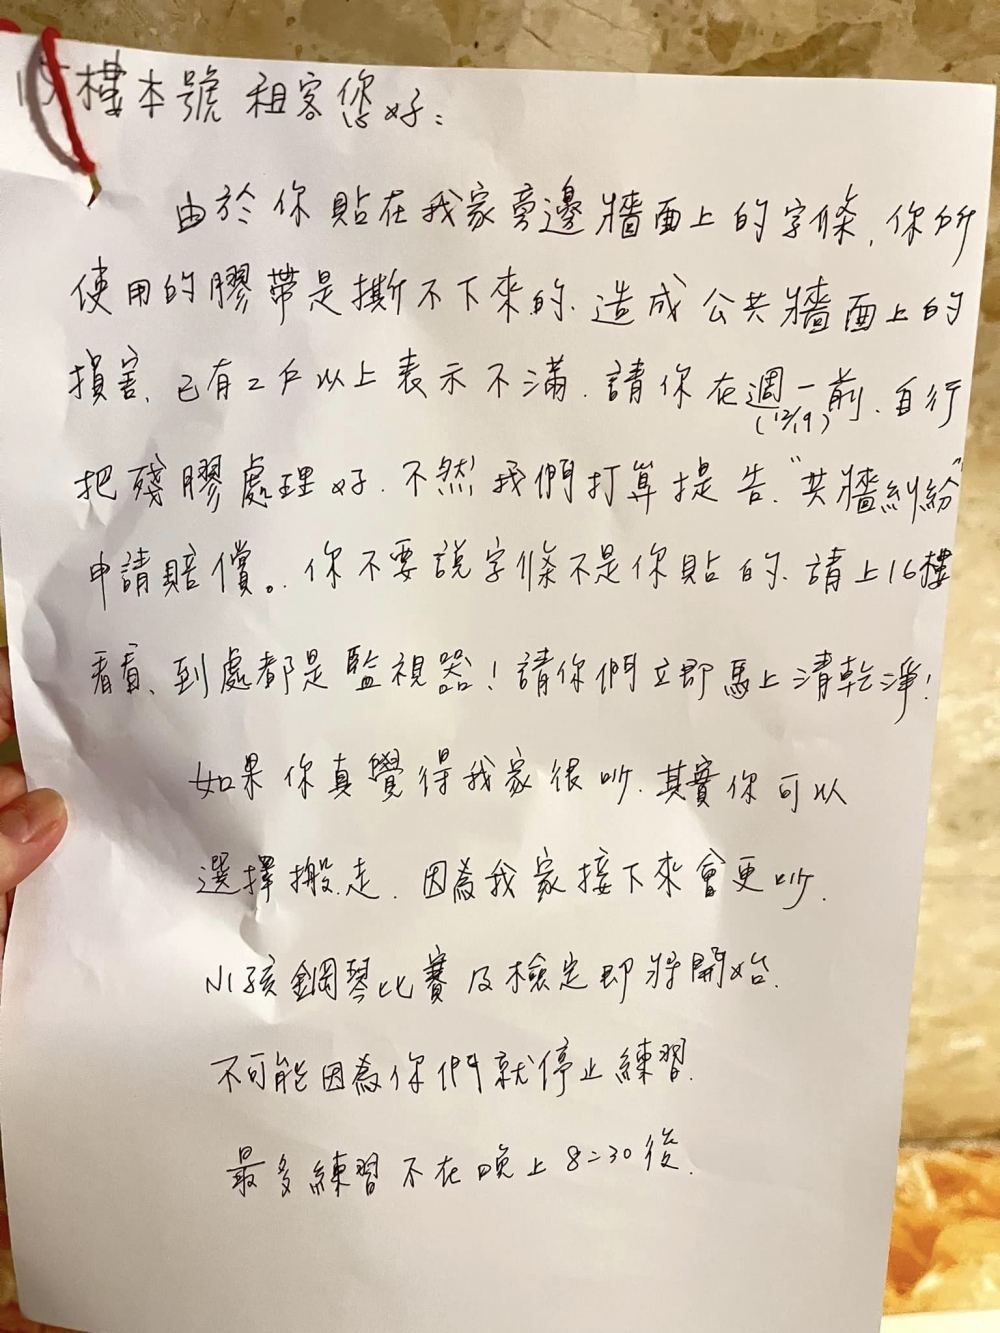 15樓本號租客您好：
由於你貼在我家旁邊牆面上的字條，你所
使用的膠帶是撕不下來的、造成公共牆面上的
損害、已有2戶以上表示不滿．請你在週一前、自行
(12/19)
把殘膠處理好．不然我們打算提告．"共牆糾紛"
申請賠償。．你不要說字條不是你貼的、請上16樓
看看、到處都是監視器！請你們立即馬上清乾淨！
如果你真覺得我家很吵．其實你可以
選擇搬走．因為我家接下來會更吵．
小孩鋼琴比賽及檢定即將開始．
不可能因為你們就停止練習．
最多練習不在晚上8:30後．